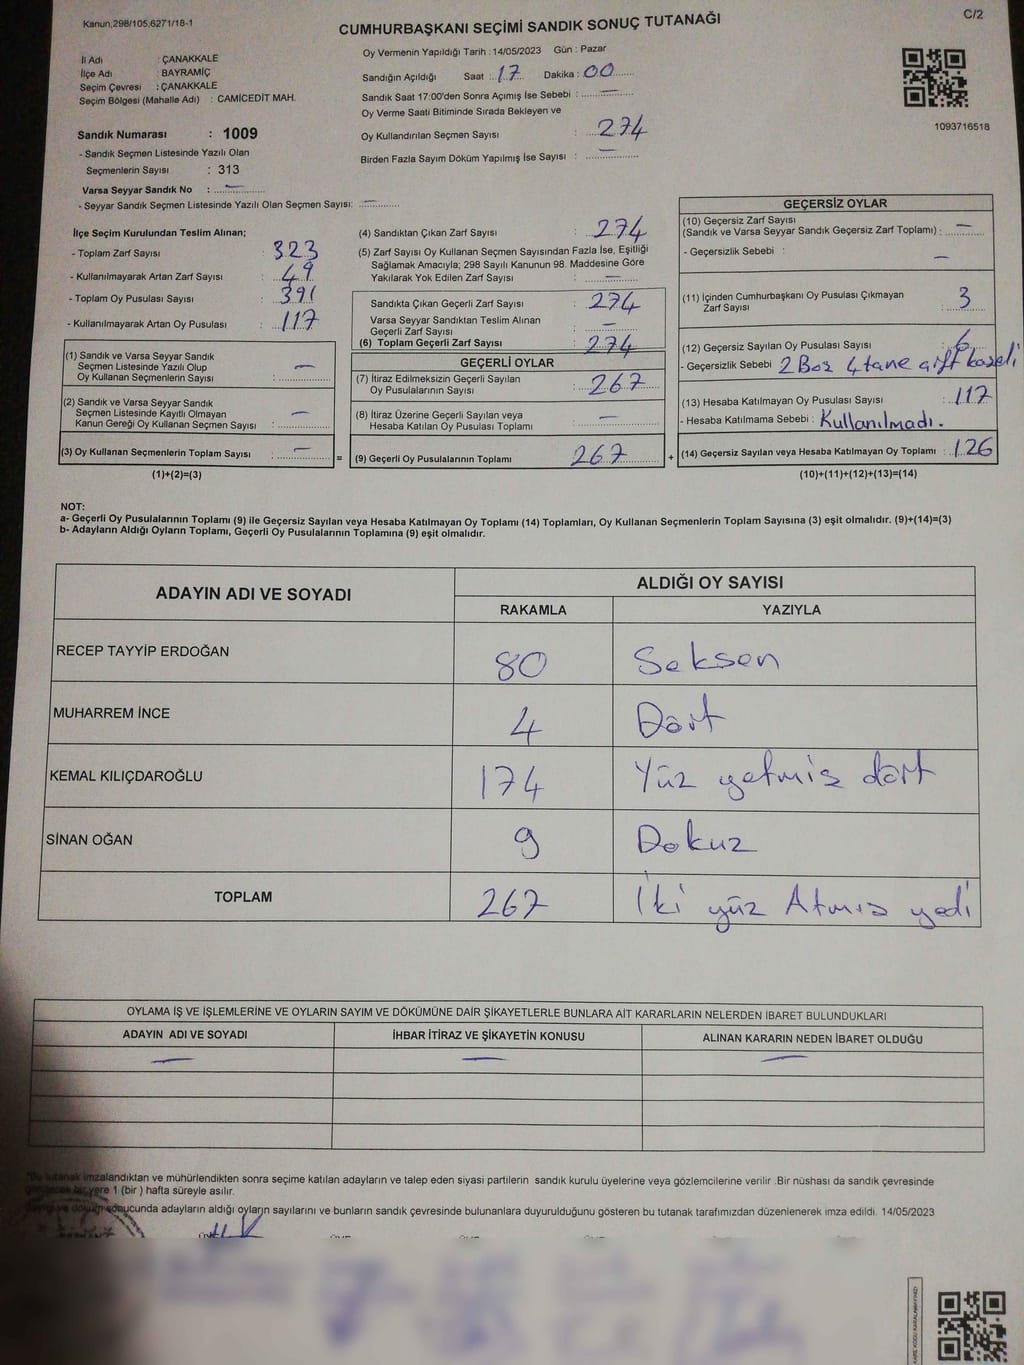 Kanun,298/105,6271/18-1
C/2
CUMHURBAŞKANI SEÇİMİ SANDIK SONUÇ TUTANAĞI
İl Adı : ÇANAKKALE
İlçe Adı : BAYRAMİÇ
Seçim Çevresi : ÇANAKKALE
Seçim Bölgesi (Mahalle Adı) : CAMİCEDİT MAH.
Sandık Numarası : 1009
- Sandık Seçmen Listesinde Yazılı Olan
Seçmenlerin Sayısı : 313
Varsa Seyyar Sandık No : —
- Seyyar Sandık Seçmen Listesinde Yazılı Olan Seçmen Sayısı: —
Oy Vermenin Yapıldığı Tarih : 14/05/2023 Gün : Pazar
Sandığın Açıldığı Saat : 17 Dakika : 00
Sandık Saat 17:00'den Sonra Açımış İse Sebebi : —
Oy Verme Saati Bitiminde Sırada Bekleyen ve
Oy Kullandırılan Seçmen Sayısı : 274
Birden Fazla Sayım Döküm Yapılmış İse Sayısı : —
1093716518
İlçe Seçim Kurulundan Teslim Alınan;
- Toplam Zarf Sayısı : 323
- Kullanılmayarak Artan Zarf Sayısı : 49
- Toplam Oy Pusulası Sayısı : 391
- Kullanılmayarak Artan Oy Pusulası : 117
(1) Sandık ve Varsa Seyyar Sandık
Seçmen Listesinde Yazılı Olup
Oy Kullanan Seçmenlerin Sayısı : —
(2) Sandık ve Varsa Seyyar Sandık
Seçmen Listesinde Kayıtlı Olmayan
Kanun Gereği Oy Kullanan Seçmen Sayısı : —
(3) Oy Kullanan Seçmenlerin Toplam Sayısı : — =
(1)+(2)=(3)
(4) Sandıktan Çıkan Zarf Sayısı : 274
(5) Zarf Sayısı Oy Kullanan Seçmen Sayısından Fazla İse, Eşitliği
Sağlamak Amacıyla; 298 Sayılı Kanunun 98. Maddesine Göre
Yakılarak Yok Edilen Zarf Sayısı : —
Sandıkta Çıkan Geçerli Zarf Sayısı : 274
Varsa Seyyar Sandıktan Teslim Alınan
Geçerli Zarf Sayısı : —
(6) Toplam Geçerli Zarf Sayısı : 274
GEÇERLİ OYLAR
(7) İtiraz Edilmeksizin Geçerli Sayılan
Oy Pusulalarının Sayısı : 267
(8) İtiraz Üzerine Geçerli Sayılan veya
Hesaba Katılan Oy Pusulası Toplamı : —
(9) Geçerli Oy Pusulalarının Toplamı 267 +
GEÇERSİZ OYLAR
(10) Geçersiz Zarf Sayısı
(Sandık ve Varsa Seyyar Sandık Geçersiz Zarf Toplamı) : —
- Geçersizlik Sebebi : —
(11) İçinden Cumhurbaşkanı Oy Pusulası Çıkmayan
Zarf Sayısı : 3
(12) Geçersiz Sayılan Oy Pusulası Sayısı : 6
- Geçersizlik Sebebi 2 Boş 4 tane çift kaşeli
(13) Hesaba Katılmayan Oy Pusulası Sayısı : 117
- Hesaba Katılmama Sebebi : Kullanılmadı.
(14) Geçersiz Sayılan veya Hesaba Katılmayan Oy Toplamı : 126
(10)+(11)+(12)+(13)=(14)
NOT:
a- Geçerli Oy Pusulalarının Toplamı (9) ile Geçersiz Sayılan veya Hesaba Katılmayan Oy Toplamı (14) Toplamları, Oy Kullanan Seçmenlerin Toplam Sayısına (3) eşit olmalıdır. (9)+(14)=(3)
b- Adayların Aldığı Oyların Toplamı, Geçerli Oy Pusulalarının Toplamına (9) eşit olmalıdır.
ADAYIN ADI VE SOYADI
ALDIĞI OY SAYISI
RAKAMLA YAZIYLA
RECEP TAYYİP ERDOĞAN 80 Seksen
MUHARREM İNCE 4 Dört
KEMAL KILIÇDAROĞLU 174 Yüz yetmiş dört
SİNAN OĞAN 9 Dokuz
TOPLAM 267 İki yüz Atmış yedi
OYLAMA İŞ VE İŞLEMLERİNE VE OYLARIN SAYIM VE DÖKÜMÜNE DAİR ŞİKAYETLERLE BUNLARA AİT KARARLARIN NELERDEN İBARET BULUNDUKLARI
ADAYIN ADI VE SOYADI İHBAR İTİRAZ VE ŞİKAYETİN KONUSU ALINAN KARARIN NEDEN İBARET OLDUĞU
— — —
*Bu tutanak imzalandıktan ve mühürlendikten sonra seçime katılan adayların ve talep eden siyasi partilerin sandık kurulu üyelerine veya gözlemcilerine verilir .Bir nüshası da sandık çevresinde
bir yere 1 (bir ) hafta süreyle asılır.
döküm sonucunda adayların aldığı oyların sayılarını ve bunların sandık çevresinde bulunanlara duyurulduğunu gösteren bu tutanak tarafımızdan düzenlenerek imza edildi. 14/05/2023